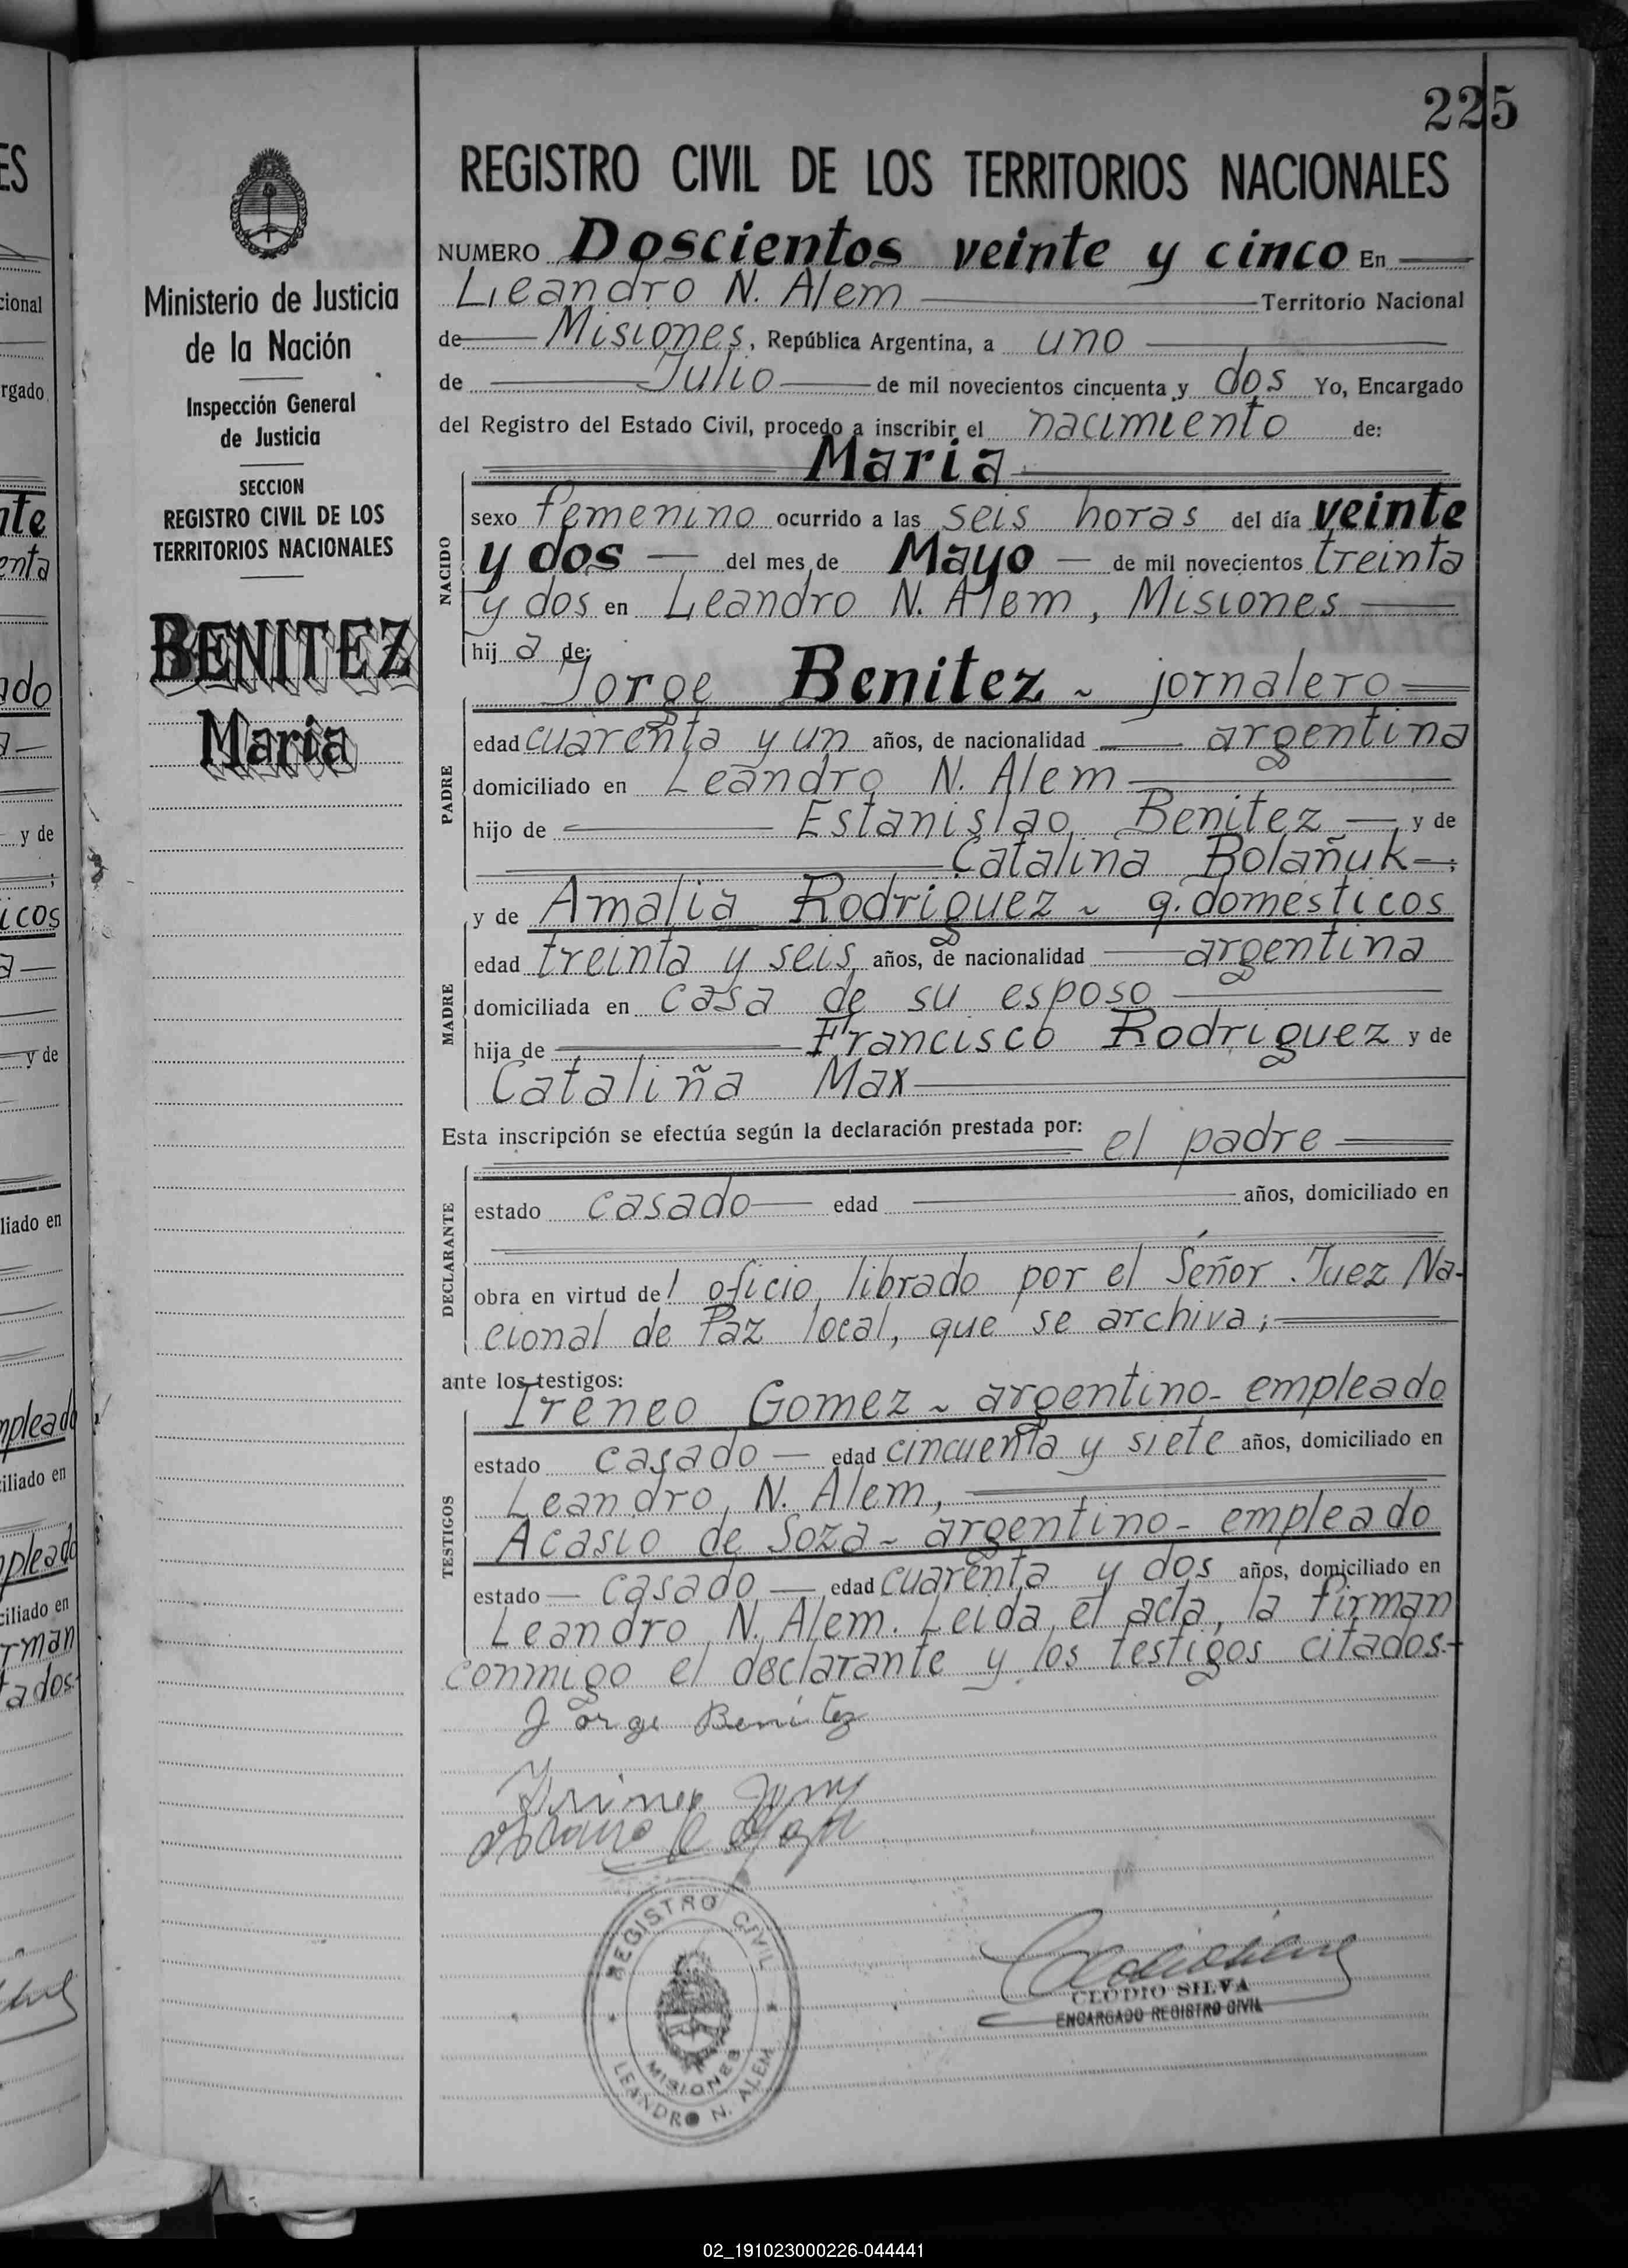 225
REGISTRO CIVIL DE LOS TERRITORIOS NACIONALES
Ministerio de Justicia
de la Nación
Inspección General
de Justicia
SECCION
REGISTRO CIVIL DE LOS
TERRITORIOS NACIONALES
BENITEZ
Maria
NUMERO Doscientos veinte y cinco En
Leandro N. Alem Territorio Nacional
de Misiones, República Argentina, a uno
de Julio de mil novecientos cincuenta y dos Yo, Encargado
del Registro del Estado Civil, procedo a inscribir el nacimiento de:
Maria
NACIDO
sexo femenino ocurrido a las seis horas del día veinte
y dos del mes de Mayo de mil novecientos treinta
y dos en Leandro N. Alem, Misiones
hija de:
Jorge Benitez ~ jornalero
PADRE
edad cuarenta y un años, de nacionalidad argentina
domiciliado en Leandro N. Alem
hijo de Estanislao Benitez y de
Catalina Bolañuk ;
y de Amalia Rodriguez ~ q. domesticos
MADRE
edad treinta y seis años, de nacionalidad argentina
domiciliada en casa de su esposo
hija de Francisco Rodriguez y de
Cataliña Max
Esta inscripción se efectúa según la declaración prestada por: el padre
DECLARANTE
estado casado edad años, domiciliado en
obra en virtud del oficio librado por el Señor Juez Na-
cional de Paz local, que se archiva;
ante los testigos:
Ireneo Gomez ~ argentino - empleado
TESTIGOS
estado casado edad cincuenta y siete años, domiciliado en
Leandro N. Alem,
Acasio de Soza ~ argentino - empleado
estado casado edad cuarenta y dos años, domiciliado en
Leandro N. Alem. Leida el acta, la firman
conmigo el declarante y los testigos citados.-
Jorge Benitez
REGISTRO CIVIL
MISIONES
LEANDRO N. ALEM
CLODIO SILVA
ENCARGADO REGISTRO CIVIL
02_191023000226-044441